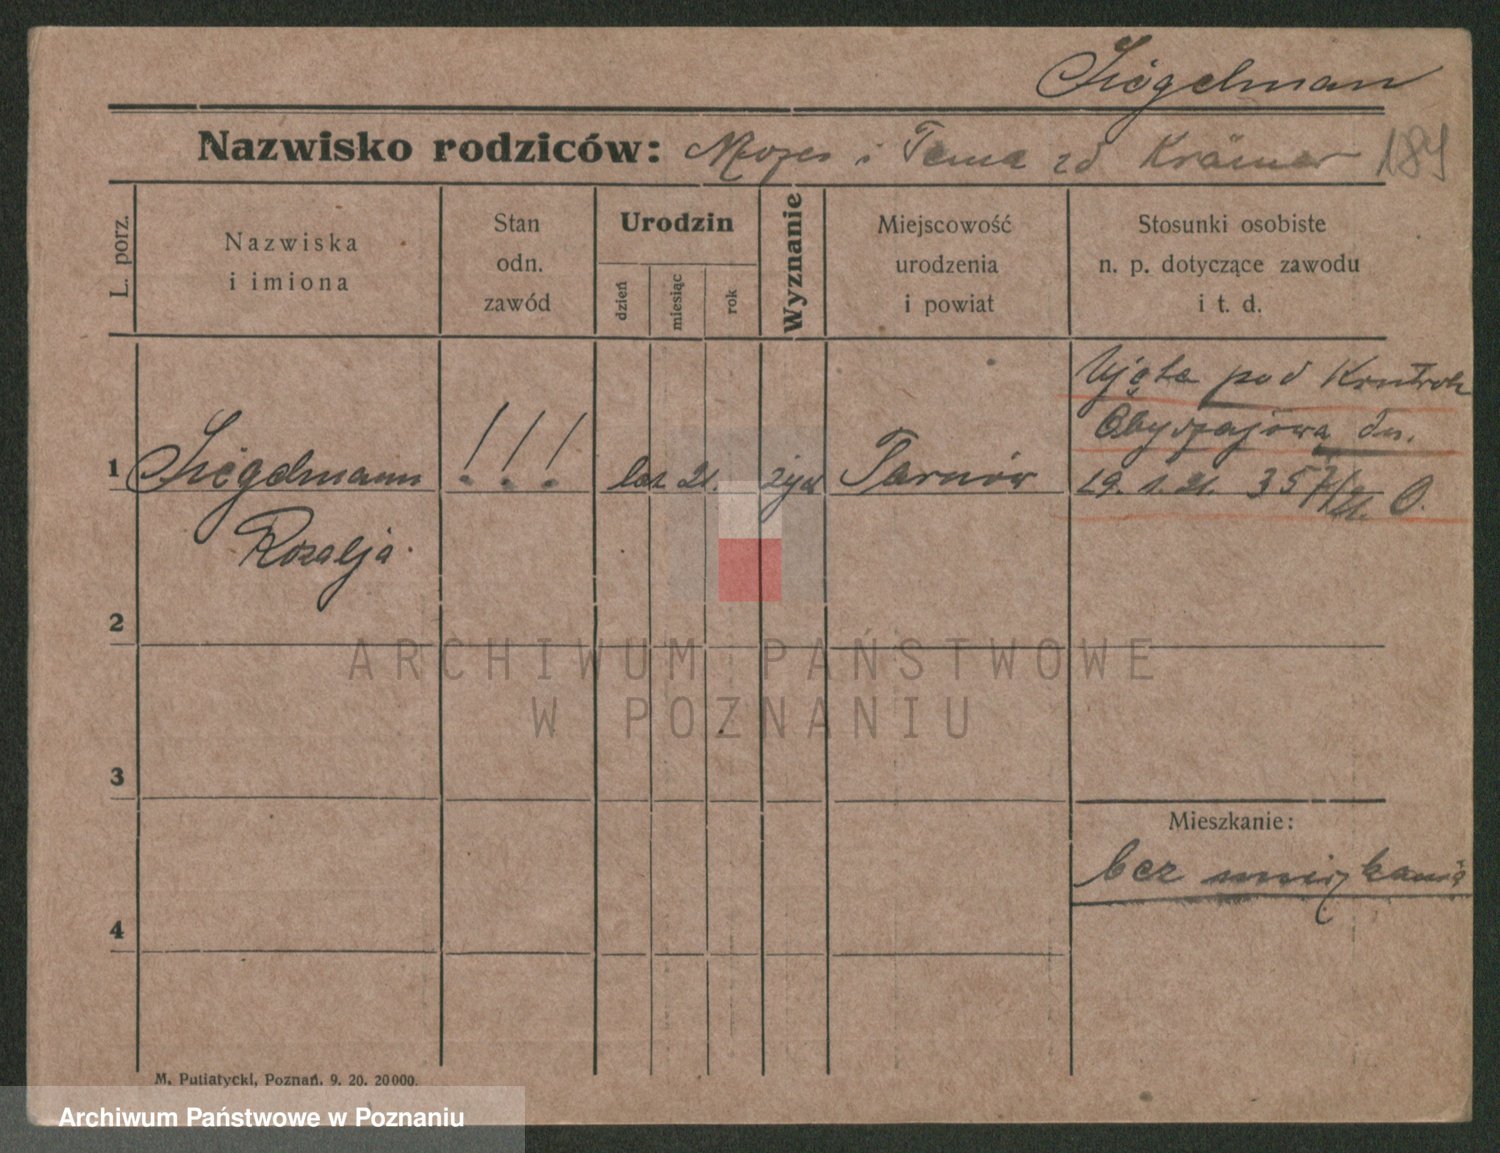 Siegelman
Nazwisko rodziców: Mozes i Tema zd Krämer 189
L. porz.
Nazwiska
i imiona
Stan
odn.
zawód
Urodzin
dzień
miesiąc
rok
Wyznanie
Miejscowość
urodzenia
i powiat
Stosunki osobiste
n. p. dotyczące zawodu
i t. d.
1 Siegelmann !!! lat 21. żyd Tarnów
Rozalja
Ujęta pod Kontrolę
Obyczajową dn.
19. 1. 21.
2
3
4
Mieszkanie:
bez mieszkania
M. Putiatycki, Poznań. 9. 20. 20000.
ARCHIWUM PAŃSTWOWE
W POZNANIU
Archiwum Państwowe w Poznaniu